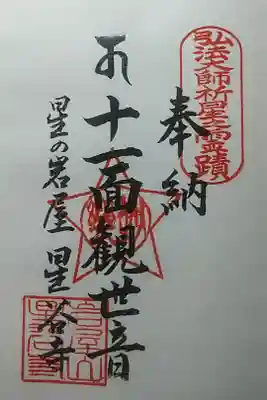 弘法大師祈星之霊蹟
奉納
十一面観世音
星の岩屋 星谷寺